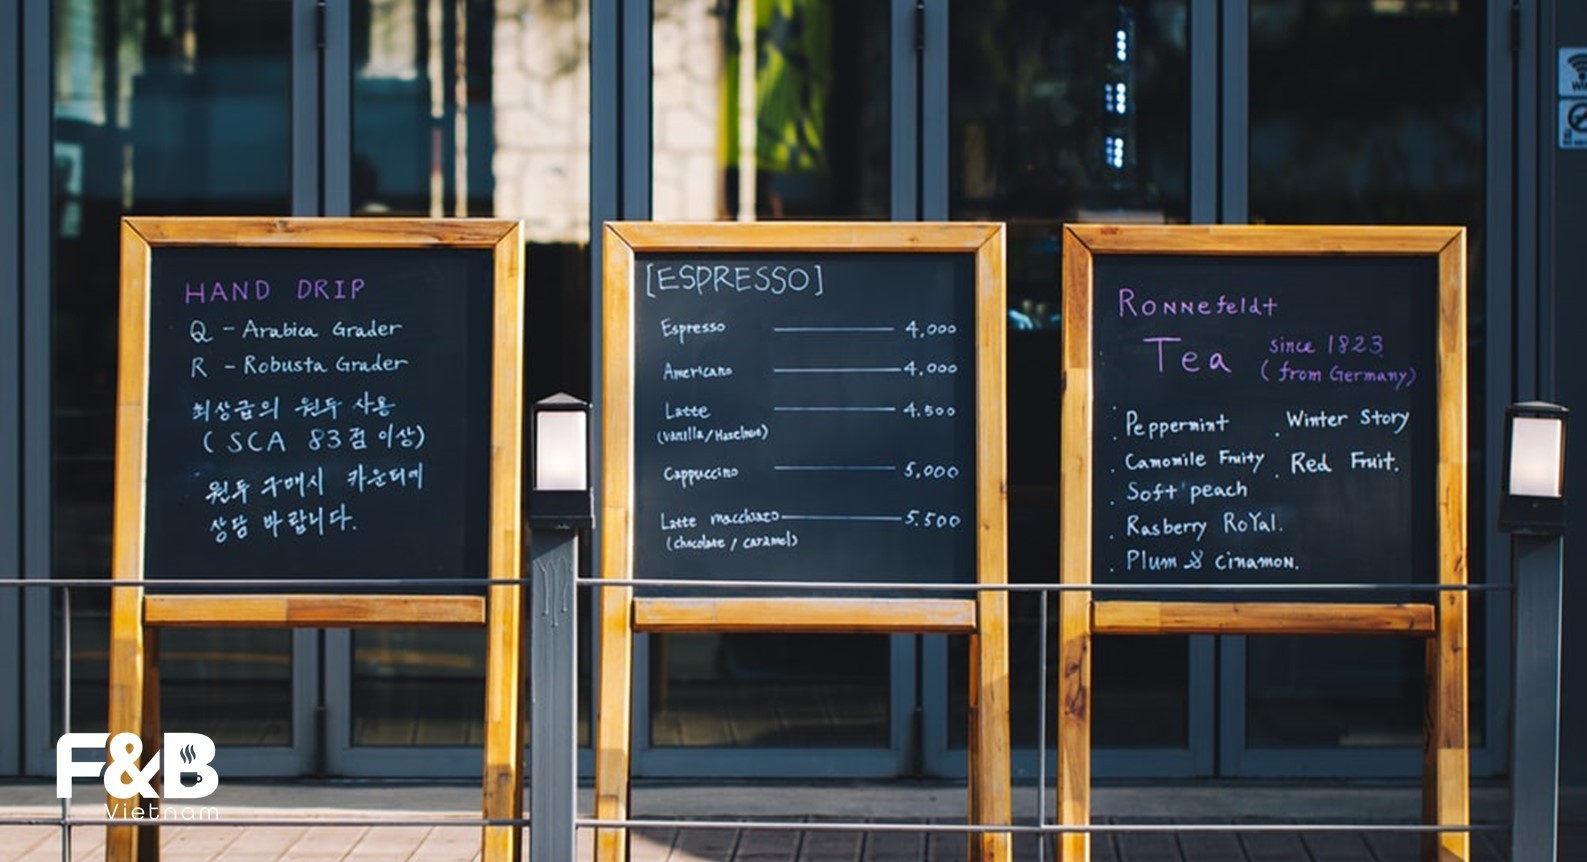 HAND DRIP
Q - Arabica Grader
R - Robusta Grader
최상급의 원두 사용
( SCA 83점 이상)
원두 구매시 카운터에
상담 바랍니다.
[ESPRESSO]
Espresso 4,000
Americano 4,000
Latte 4.500
(vanilla / Hazelnut)
Cappuccino 5,000
Latte macchiato 5.500
(chocolate / caramel)
Ronnefeldt
Tea since 1823
( from Germany)
. Peppermint
. Camomile Fruity
. Soft peach
. Rasberry RoYal.
. Plum & cinamon.
. Winter Story
. Red Fruit.
F&B
Vietnam